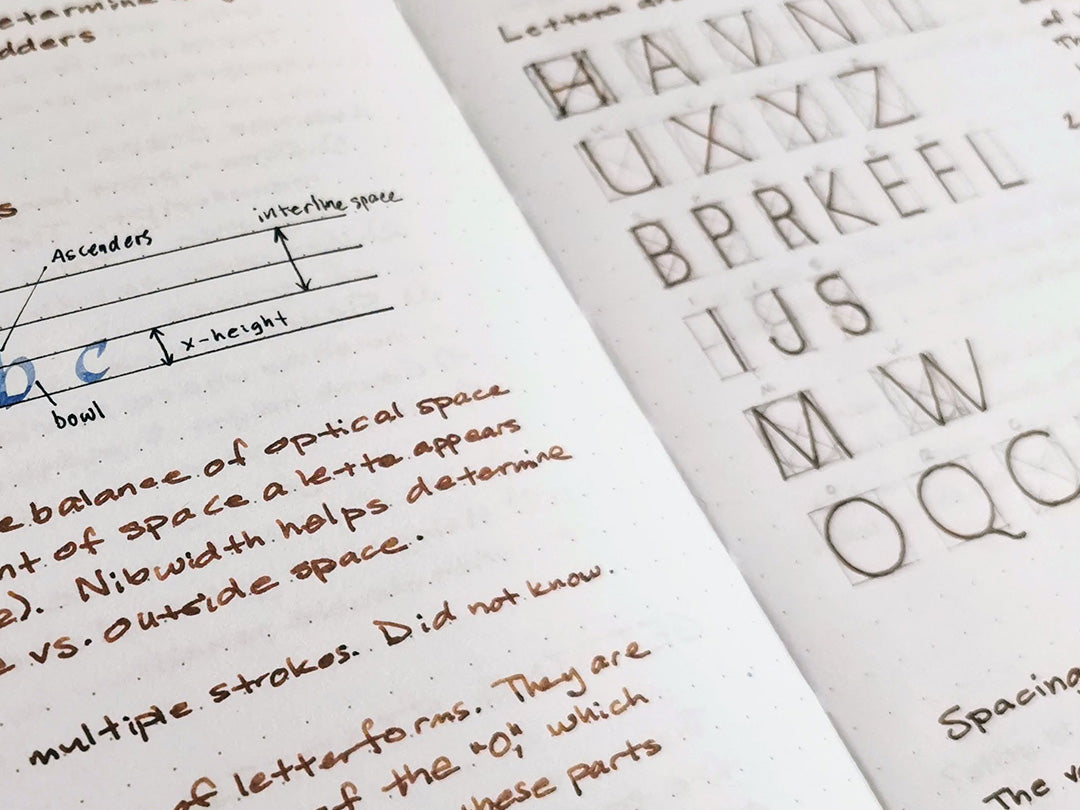 dders
s
Ascenders
interline space
b c
x-height
bowl
balance of optical space
nt of space a lette appears
e). Nibwidth helps determine
vs. outside space.
multiple strokes. Did not know.
of letterforms. They are
of the "O," which
these parts
Letters
H A V N
U X Y Z
B P R K E F L
I J S
M W
O Q C
2
Spacing
The